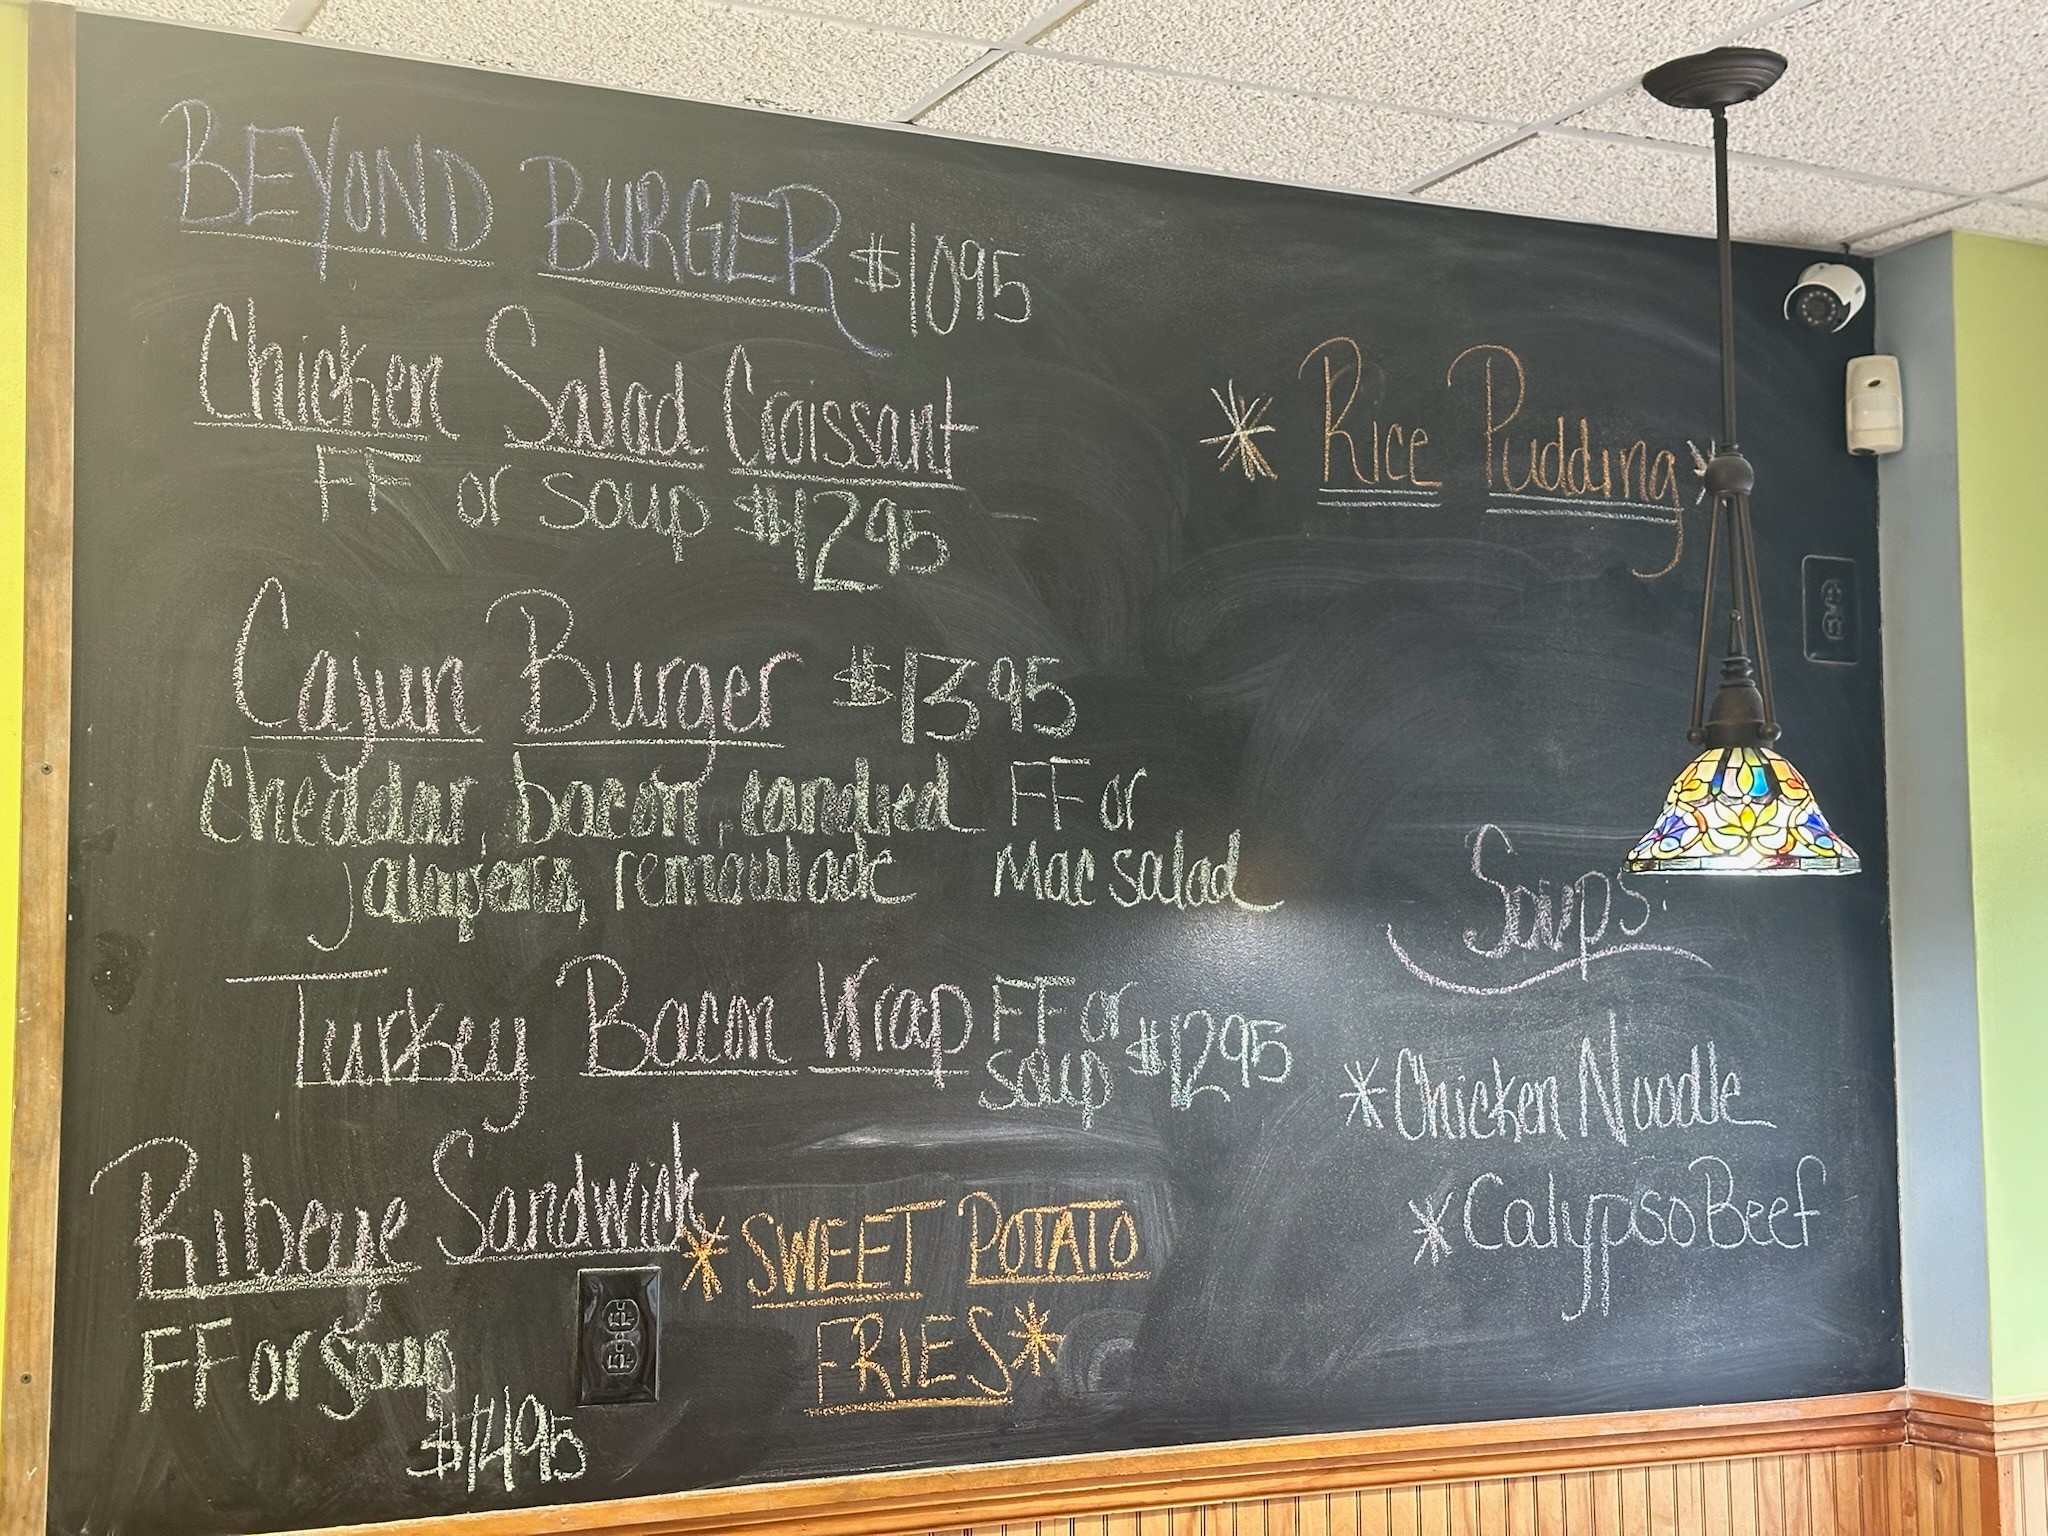 BEYOND BURGER $1095
Chicken Salad Croissant
FF or soup $1295
Cajun Burger $1395
cheddar, bacon, candied FF or
jalapenos, remoulade Mac salad
Turkey Bacon Wrap FF or
soup $1295
Ribeye Sandwich
FF or soup
$1495
*SWEET POTATO
FRIES*
* Rice Pudding *
Soups:
*Chicken Noodle
*Calypso Beef